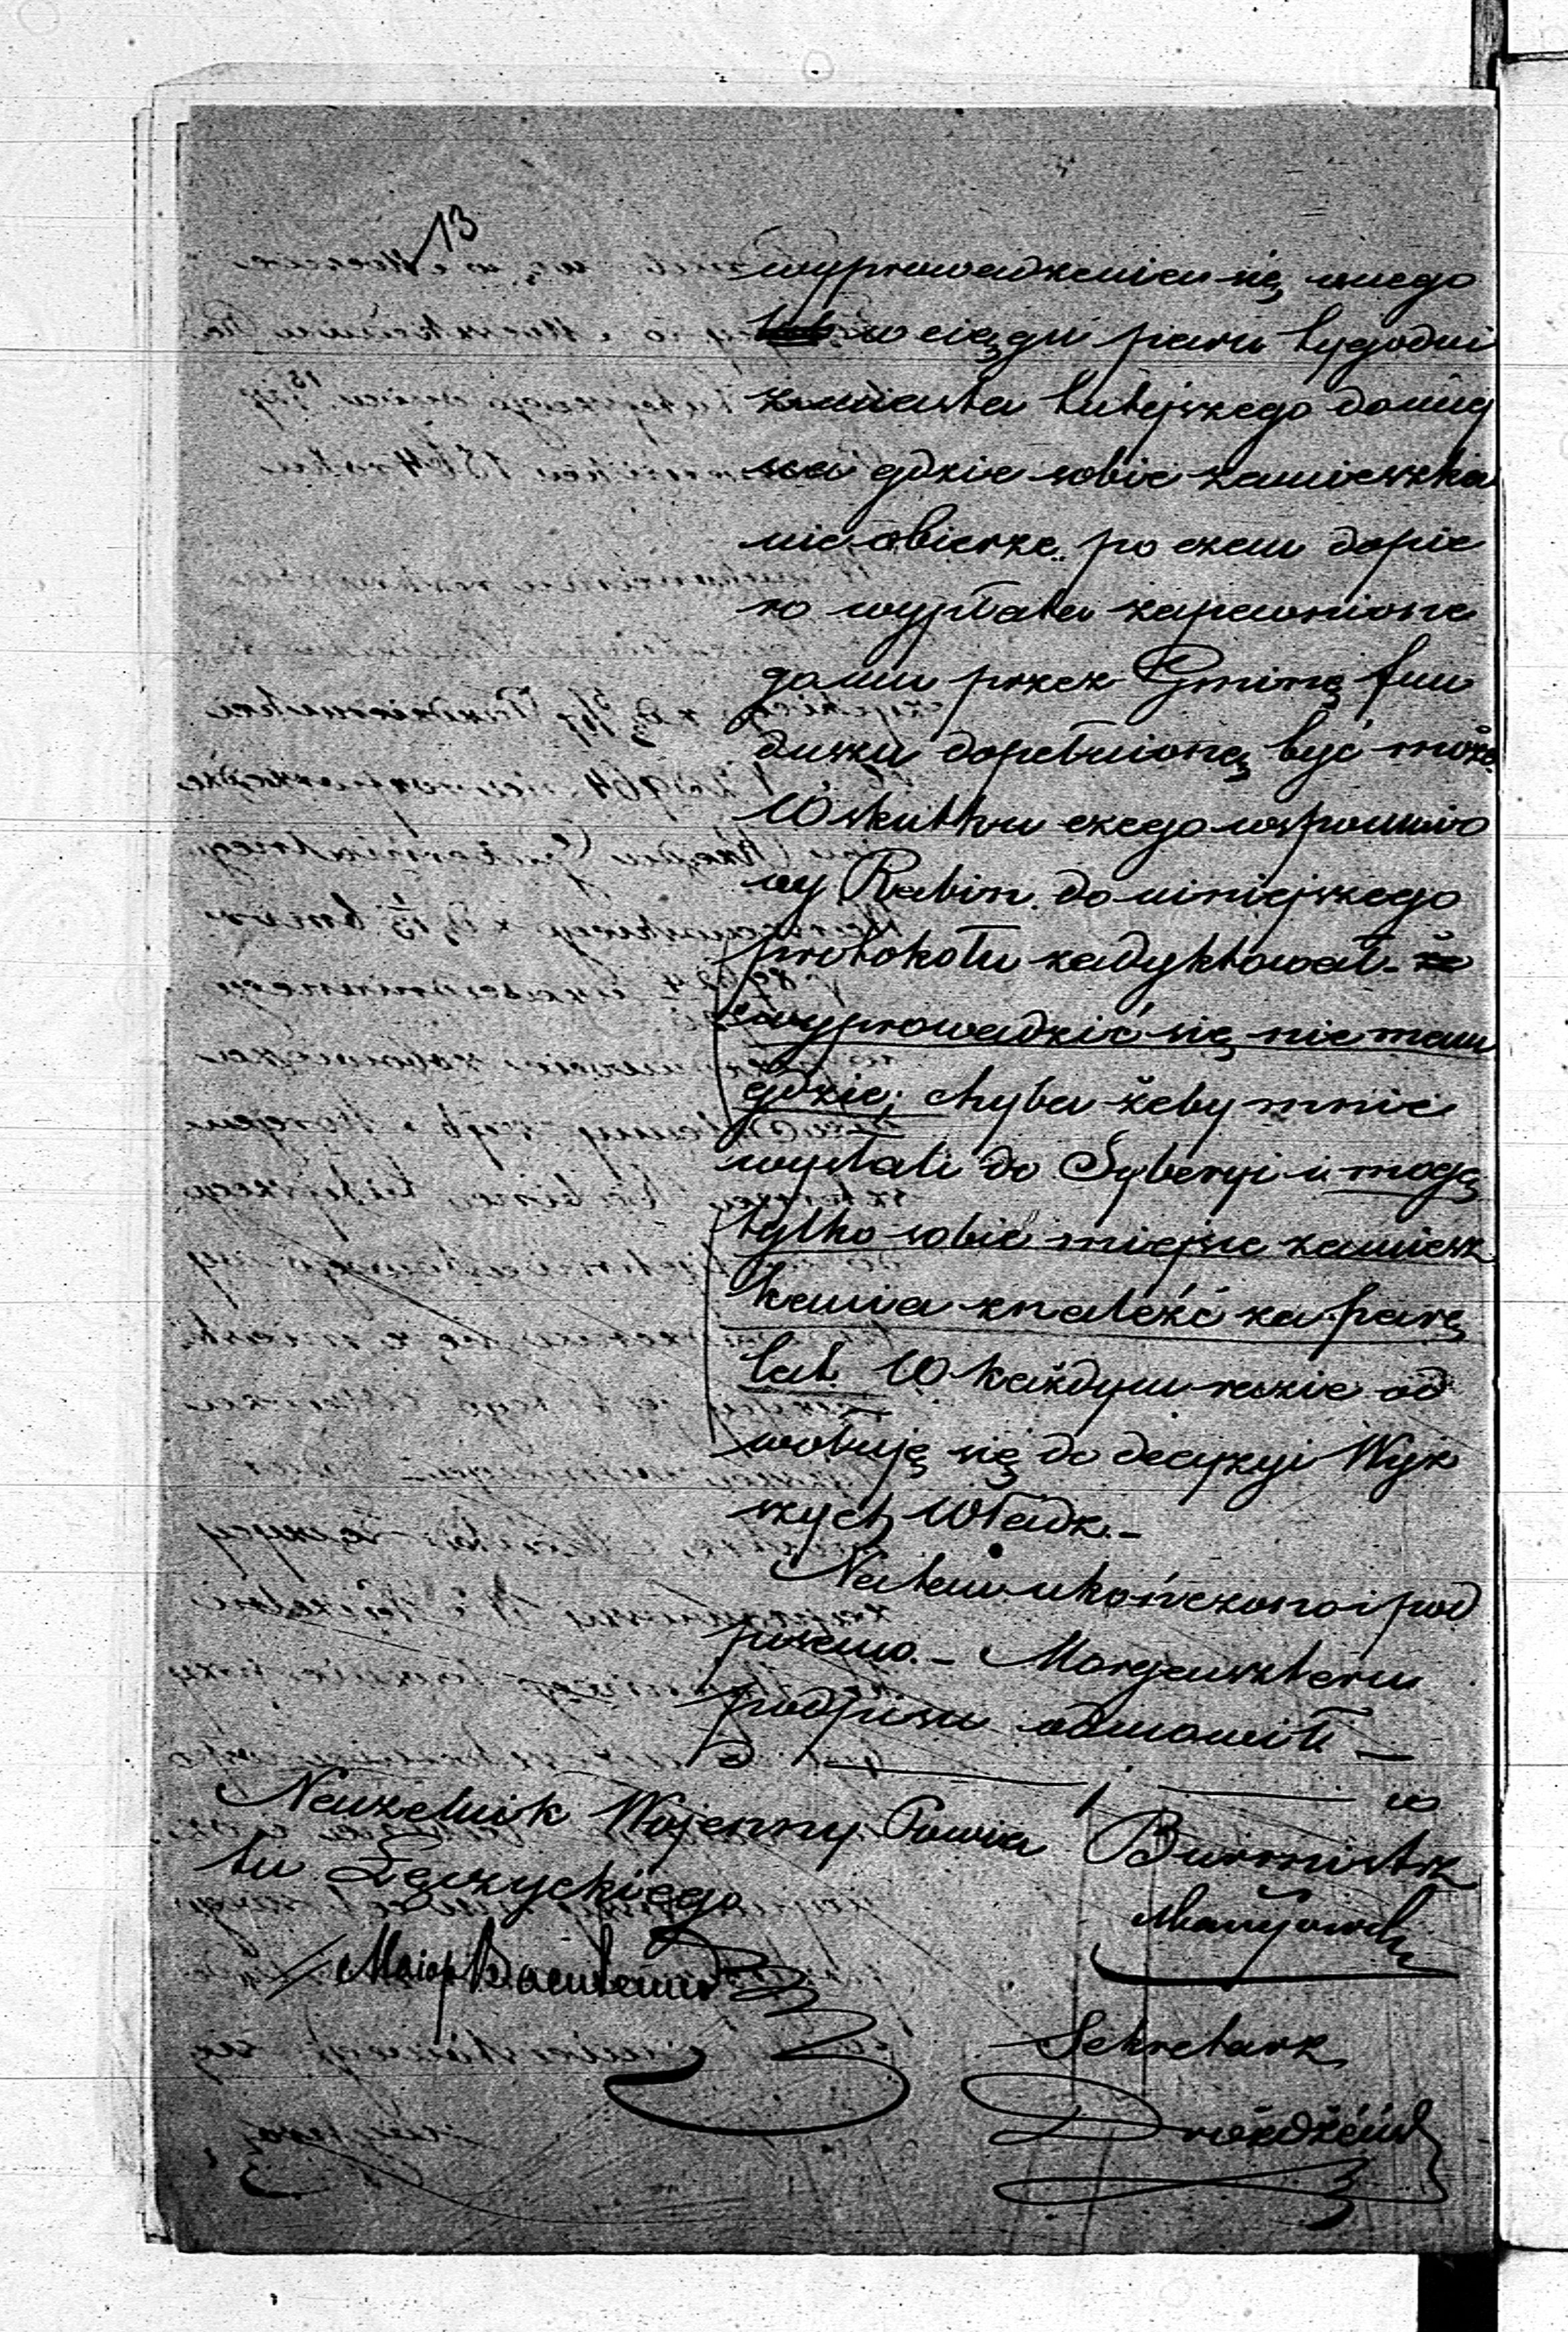 13
wyprowadzenia się swego
w ciągu paru tygodni
z miasta tutejszego do miej
sca gdzie sobie zamieszka
nie obierze, po czem dopie
ro wypłata zapewnione
go mu przez Gminę fun
duszu dopełnioną być może.
W skutku czego wspomnio
ny Rabin do niniejszego
protokółu zadyktował –
wyprowadzić się nie mam
gdzie; chyba żeby mnie
wysłali do Syberyi i mogę
tylko sobie miejsce zamiesz
kania znaleźć za parę
lat. W każdym razie od
wołuję się do decyzyi Wyż
szych Władz. –
Na tem ukończono i pod
pisano. – Morgensztern
podpisu odmówił –
Naczelnik Wojenny Powia
tu Łęczyckiego
Maior
Burmistrz
Sekretarz